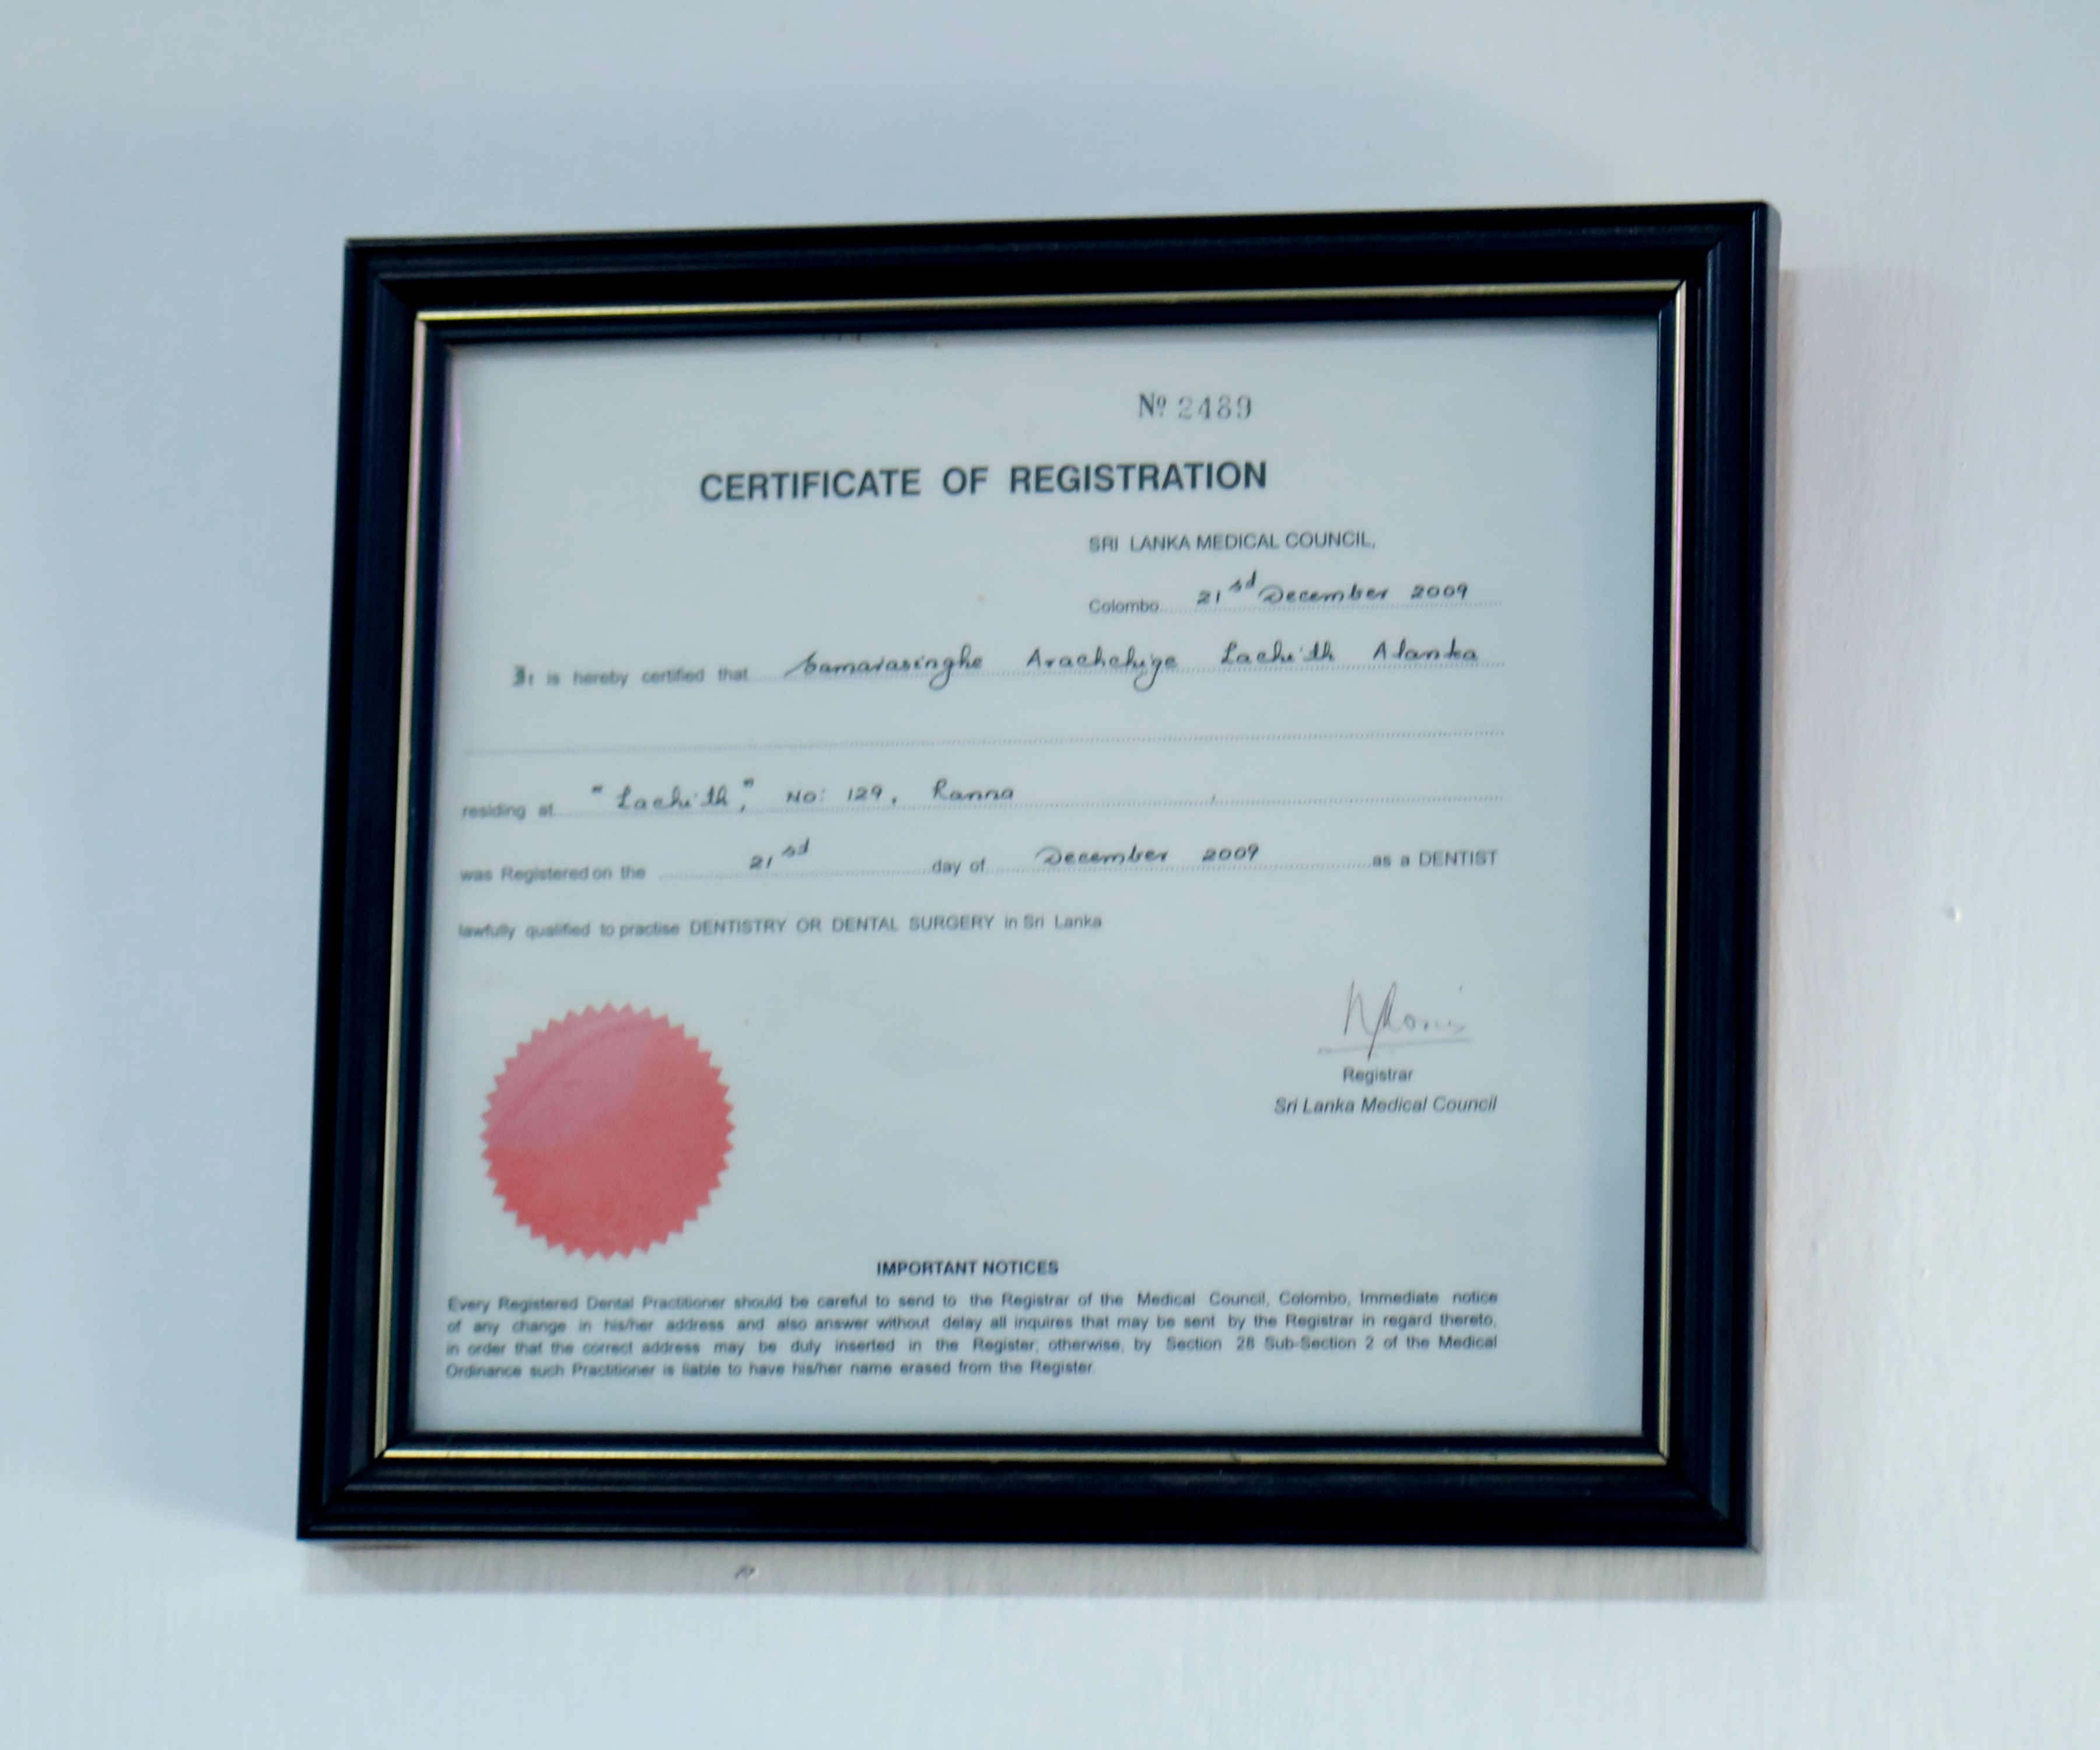 Nº 2489
CERTIFICATE OF REGISTRATION
SRI LANKA MEDICAL COUNCIL,
Colombo 21sd December 2009
It is hereby certified that Samarasinghe Arachchige Lachith Alanka
residing at "Lachith," No: 129, Ranna
was Registered on the 21sd day of December 2009 as a DENTIST
lawfully qualified to practise DENTISTRY OR DENTAL SURGERY in Sri Lanka
Registrar
Sri Lanka Medical Council
IMPORTANT NOTICES
Every Registered Dental Practitioner should be careful to send to the Registrar of the Medical Council, Colombo, Immediate notice
of any change in his/her address and also answer without delay all inquires that may be sent by the Registrar in regard thereto,
in order that the correct address may be duly inserted in the Register; otherwise, by Section 28 Sub-Section 2 of the Medical
Ordinance such Practitioner is liable to have his/her name erased from the Register.